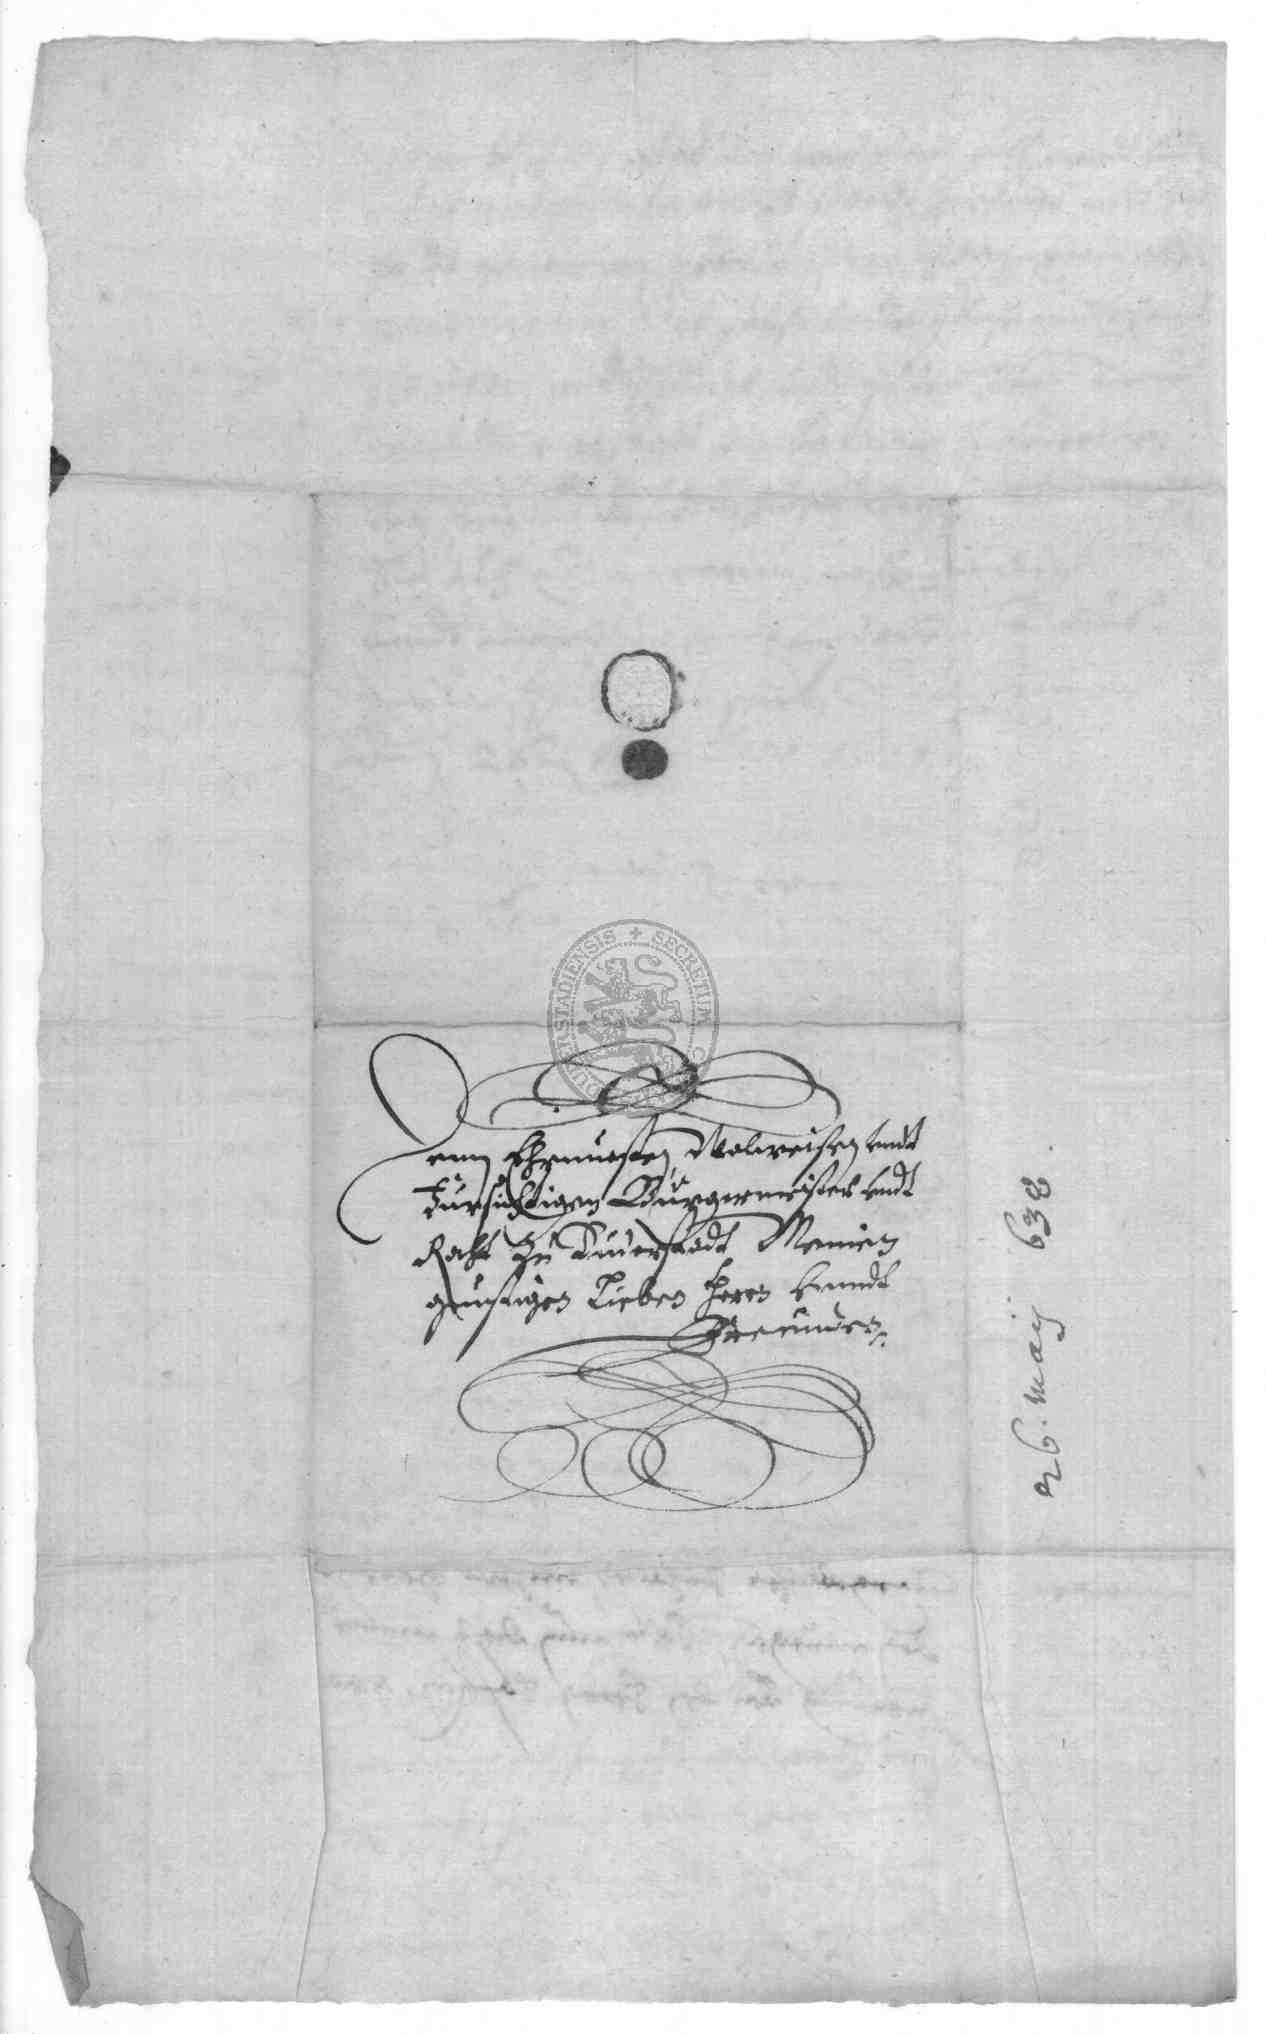 Denn Ehrnuesten Wolweisen vndt
Fursichtigen Bürgermeister vndt
Raht Zu Duderstadt Meinen
gunstigen Lieben Herrn vnndt
Freunden
26. maÿ 638
SECRETUM DUDERSTADIENSIS